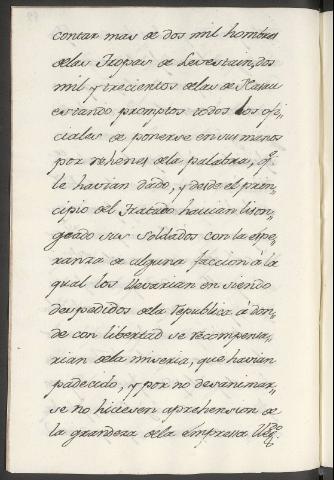 contar mas de dos mil hombres
de las Tropas de Levestain, dos
mil y trecientos de las de Nasau
estando promptos todos los ofi„
ciales de ponerse en sus manos
por rehenes de la palabra, q.e
le havian dado, y desde el prin„
cipio del Tratado havian lison„
geado sus soldados con la espe„
ranza de alguna faccion á la
qual los llevarian en siendo
despedidos de la Republica á don„
de con libertad se recompensa„
rian de la miseria, que havian
padecido, y por no desanimar„
se no hiciesen aprehension de
la grandeza de la Empresa